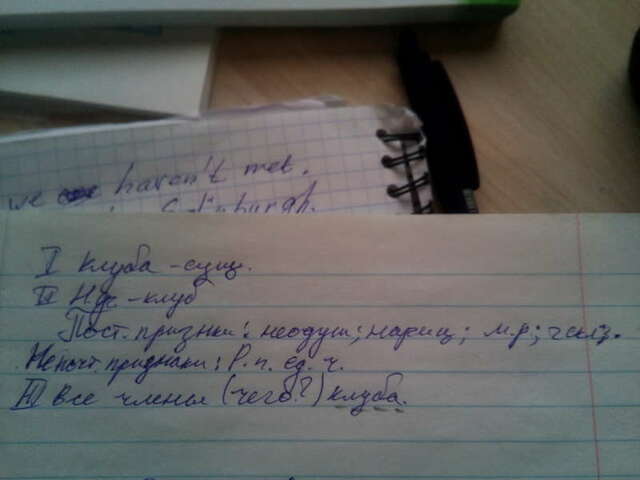 we haven't met.
Edinburgh.
I клуба - сущ.
II Н.ф - клуб
Пост. признки: неодуш; нариц; м.р;
Непост. признаки: Р.п. ед. ч.
III Все члены (чего?) клуба.